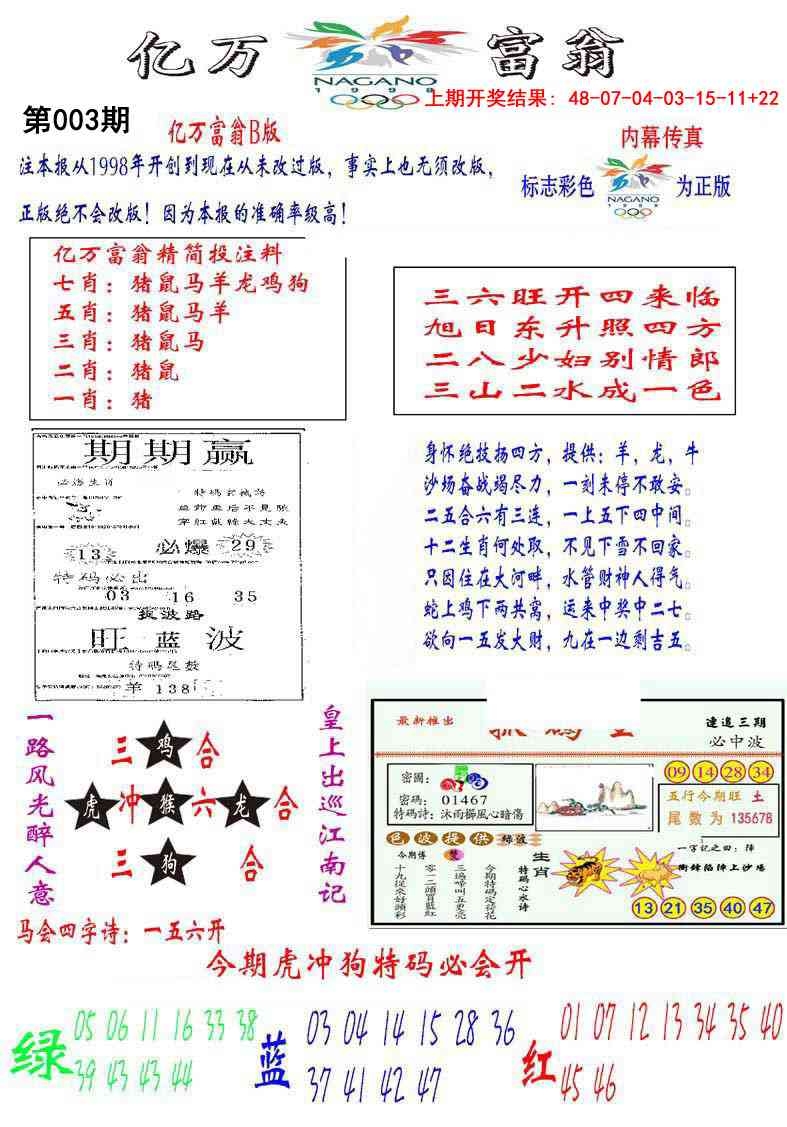 亿万富翁
NAGANO
1998
上期开奖结果: 48-07-04-03-15-11+22
第003期
亿万富翁B版
内幕传真
注本报从1998年开创到现在从未改过版，事实上也无须改版，
正版绝不会改版！因为本报的准确率级高！
标志彩色
NAGANO
1998
为正版
亿万富翁精简投注料
七肖：猪鼠马羊龙鸡狗
五肖：猪鼠马羊
三肖：猪鼠马
二肖：猪鼠
一肖：猪
三六旺开四来临
旭日东升照四方
二八少妇别情郎
三山二水成一色
期期赢
必爆
13
29
特码必出
03 16 35
捉波路
旺蓝波
特码尾数
羊 138
身怀绝技扬四方，提供：羊，龙，牛
沙场奋战竭尽力，一刻未停不敢安。
二五合六有三连，一上五下四中间。
十二生肖何处取，不见下雪不回家。
只因住在大河畔，水管财神人得气。
蛇上鸡下两共窝，运来中奖中二七。
欲向一五发大财，九在一边剩吉五。
一路风光醉人意
三鸡合
虎冲猴六龙合
三狗合
皇上出巡江南记
马会四字诗：一五六开
最新推出
连追三期
必中波
密圖：
密碼： 01467
特碼詩：沐雨櫛風心暗傷
09 14 28 34
五行今期旺 土
尾数为 135678
色波提供 綠藍
今期博 雙
生肖
特碼心水诗
今期特碼定荷花
三遍啼叫五更亮
零一二頭買藍紅
十九從來好頭彩
一字记之曰：陣
衝鋒陷陣上沙場
13 21 35 40 47
今期虎冲狗特码必会开
绿
05 06 11 16 33 38
39 43 43 44
蓝
03 04 14 15 28 36
37 41 42 47
红
01 07 12 13 34 35 40
45 46